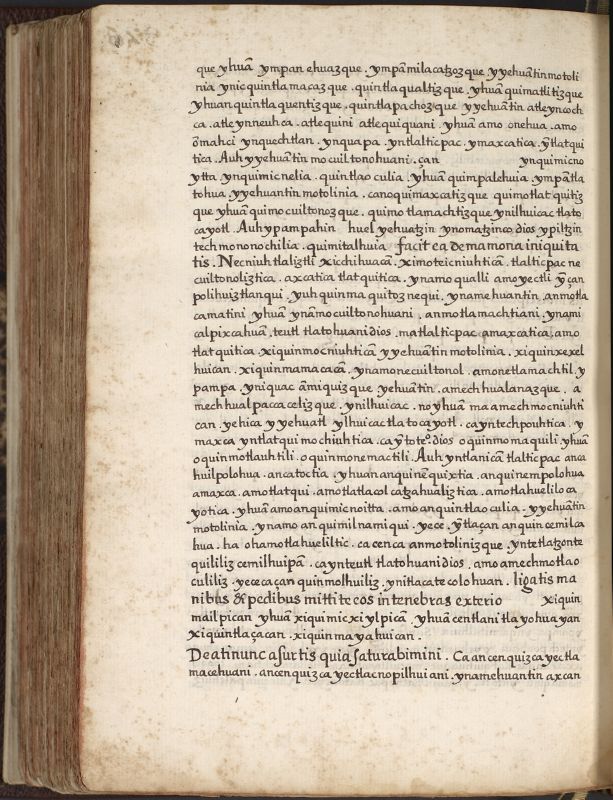 que yhuā ympan ehuazque . ympā milacatzozque yyehuātin motoli
nia ynic quintlamacazque . quintlaqualtizque . yhuā quimatlitizque
yhuan quintlaquentizque . quintlapachozque yyehuātin atle yn coch
ca . atle yn neuhca . atle quini atle quiquani . yhuā amo onehua . amo
ōmahci ynquechtlan . ynquapa . yntlalticpac . ymaxcatica . ȳtlatqui
tica . Auh yyehuātin mocuiltonohuani . çan ynquimicno
ytta ynquimicnelia . quintlaoculia . yhuā quimpalehuia . ympātla
tohua yyehuantin motolinia . cano quimaxcatizque quimotlatquitiz
que yhuā quimocuiltonozque . quimotlamachtizque ynilhuicac tlato
cayotl . Auh ypampahin huel yehuatzin ynomatzinco dios ypiltzin
tech mononochilia . quimitalhuia facite a de mamona iniquita
tis . Necniuhtlaliztli xicchihuacā . ximoteicniuhticā . tlalticpac ne
cuiltonoliztica . axcatica tlatquitica . ynamo qualli amo yectli ȳ çan
polihuiztlanqui . yuh quinmaquitoz nequi . ynamehuantin . anmotla
camatini yhuā ynāmocuiltonohuani . anmotlamachtiani . ynami
calpixcahuā . teutl tlatohuani dios . ma tlalticpac amaxcatica . amo
tlatquitica . xiquinmocniuhticā yyehuātin motolinia . xiquinxexel
huican . xiquinmamacacā . ynamonecuiltonol . amonetlamachtil . y
pampa . yniquac āmiquizque yehuātin . amechhualanazque . a
mechhualpaccacelizque . ynilhuicac . no yhuā ma amechmocniuhti
can . yehica yyehuatl ylhuicac tlatocayotl . ca yntech pouhtica . y
maxca yntlatqui mochiuhtica . ca ȳtoteo. dios oquinmomaquili yhuā
oquinmotlauhtili . oquinmonemactili . Auh yntlanicā tlalticpac anca
huilpolohua . ancatoctia . yhuan anquinēquixtia . anquinempolohua
amaxca . amotlatqui . amotlatlacolcatzahualiztica . amotlahueliloca
yotica . yhuā amo anquimicnoitta . amo anquintlaoculia . yyehuātin
motolinia . ynamo anquimilnamiqui . yece . ȳtlaçan anquincemilca
hua . ha ohamotlahueliltic . ca cenca anmotolinizque . yntetlatzonte
quililiz cemilhuipā . ca ynteutl tlatohuani dios . amo amechmotlao
culiliz . yece ca çan quinmolhuiliz . ynitlacatecolohuan . ligatis ma
nibus & pedibus mittite eos in tenebras exterio xiquin
mailpican yhuā xiquimicxiylpicā yhuā centlani tlayohuayan
xiquintlaçacan . xiquinmayahuican .
Beati nunc asurtis quia saturabimini . Ca ancenquizcayectla
macehuani . ancenquizcayectlacnopilhuiani . ynamehuantin axcan